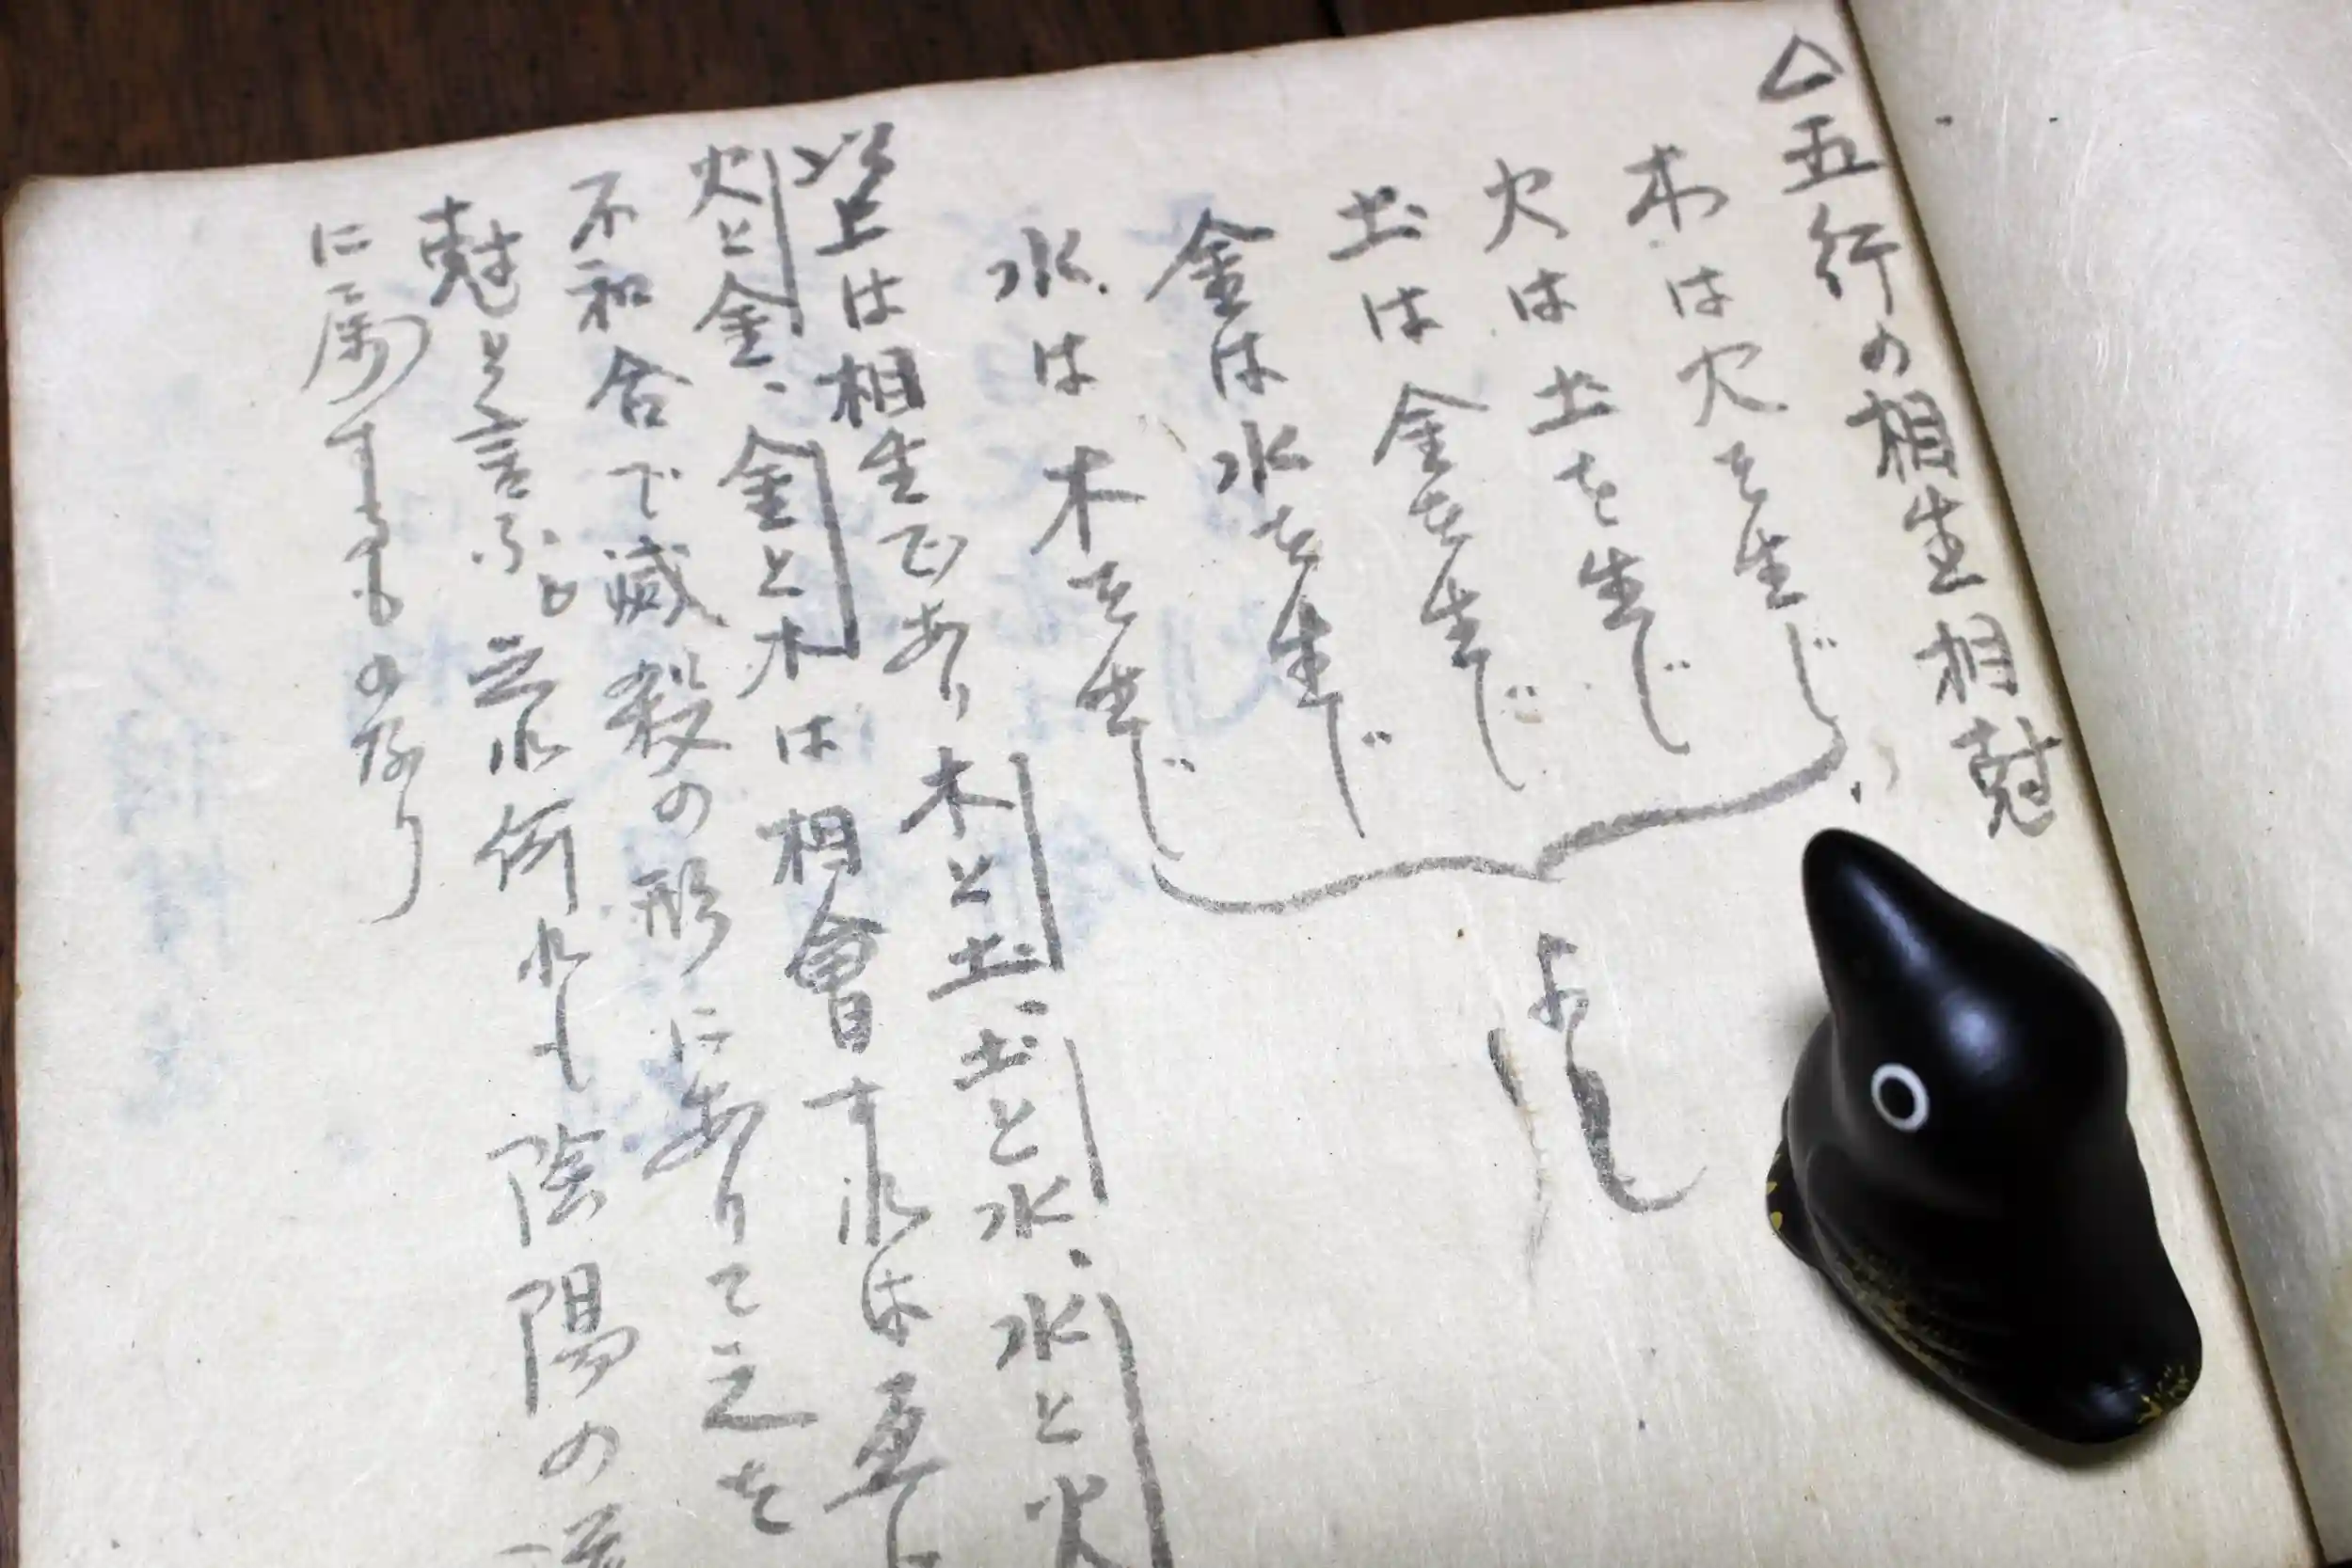 △五行の相生相尅
木は火を生じ
火は土を生じ
土は金を生じ
金は水を生じ
水は木を生じ
よし
以上は相生であり木と土、土と水、水と火
火と金、金と木は相會すれは互に
不和合で滅殺の形にありて之を
尅と言ふも之れ何れも陰陽の
に属するものなり